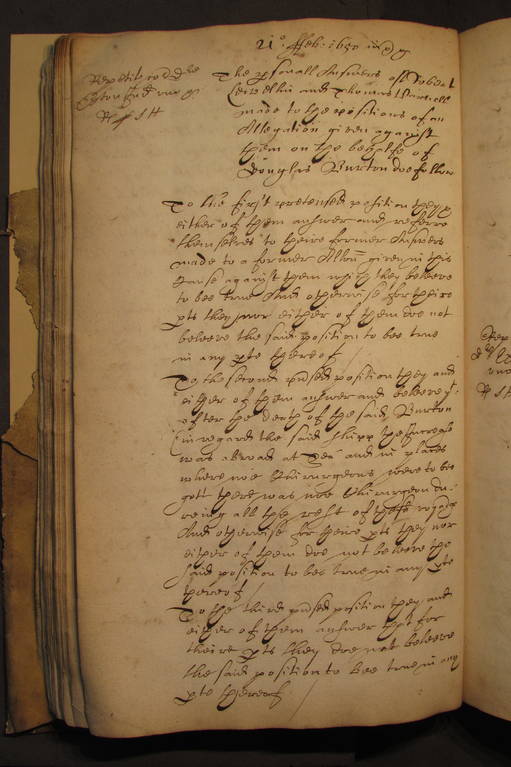 21o. ffeb. 1650
The psonall Answers of Robert
and Thomas
made to the positions of an
Allegation given against
them on the behalfe of
Douglas Burton doe follow
To the first pretensed position they
either of them answer and referre
themselves to theire former Answers
made to a former Allon given in this
Cause against them which they beleeve
to bee true And otherwise for theire
pts they nor either of them doe not
beleeve the said position to bee true
in any pte thereof
To the second position they and
either of them answer and beleeve yt
after the death of the said Burton
in regard the said shipp the Increase
was abroad at Sea and in places
where noe Chirurgeons were to bee
gott there was noe Chirurgeon du-
reing all the rest of the voyadge
And otherwise for theire pts they nor
either of them doe not beleeve the
said position to bee true in any pte
thereof
To the third position they and
either of them answer that for
theire pts they doe not beleeve
the said position to bee true in any
pte thereof